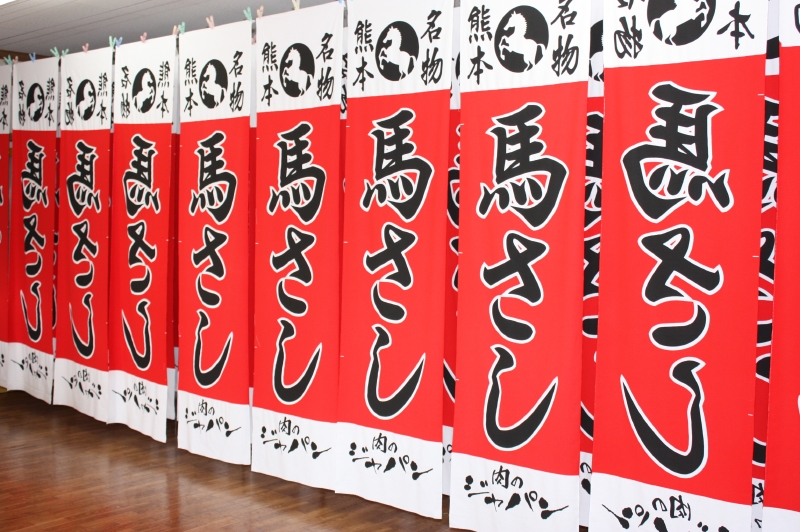 熊本名物
馬さし
肉のジャパン
熊本名物
馬さし
肉のジャパン
熊本名物
馬さし
肉のジャパン
熊本名物
馬さし
肉のジャパン
熊本名物
馬さし
肉のジャパン
熊本名物
馬さし
肉のジャパン
熊本名物
馬さし
肉のジャパン
熊本名物
馬さし
肉のジャパン
熊本名物
馬さし
肉のジャパン